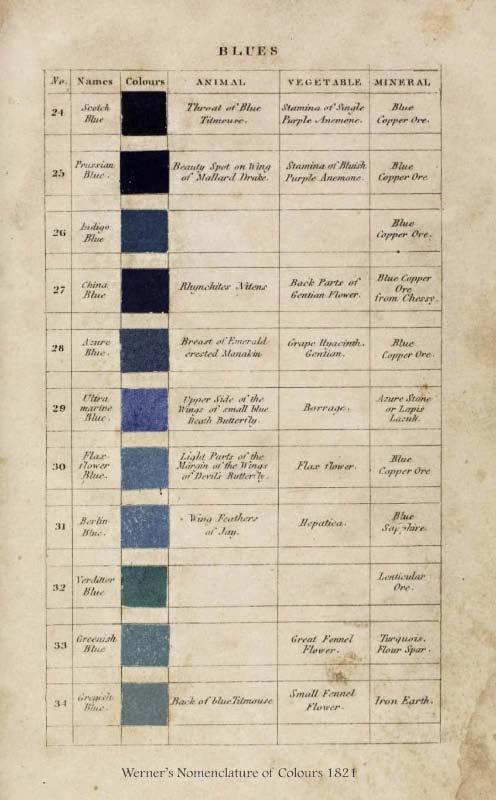 BLUES
No. Names Colours ANIMAL VEGETABLE MINERAL
24 Scotch Blue Throat of Blue Titmouse. Stamina of Single Purple Anemone. Blue Copper Ore.
25 Prussian Blue. Beauty Spot on Wing of Mallard Drake. Stamina of Bluish Purple Anemone. Blue Copper Ore
26 Indigo Blue Blue Copper Ore.
27 China Blue Rhynchites Nitens Back Parts of Gentian Flower. Blue Copper Ore from Chessy.
28 Azure Blue. Breast of Emerald crested Manakin Grape Hyacinth. Gentian. Blue Copper Ore.
29 Ultra marine Blue. Upper Side of the Wings of small blue Heath Butterfly. Borrage. Azure Stone or Lapis Lazuli.
30 Flax flower Blue. Light Parts of the Margin of the Wings of Devil's Butterfly. Flax flower. Blue Copper Ore
31 Berlin Blue. Wing Feathers of Jay. Hepatica. Blue Sapphire.
32 Verditter Blue Lenticular Ore.
33 Greenish Blue Great Fennel Flower. Turquois. Flour Spar.
34 Greyish Blue. Back of blue Titmouse Small Fennel Flower. Iron Earth.
Werner's Nomenclature of Colours 1821